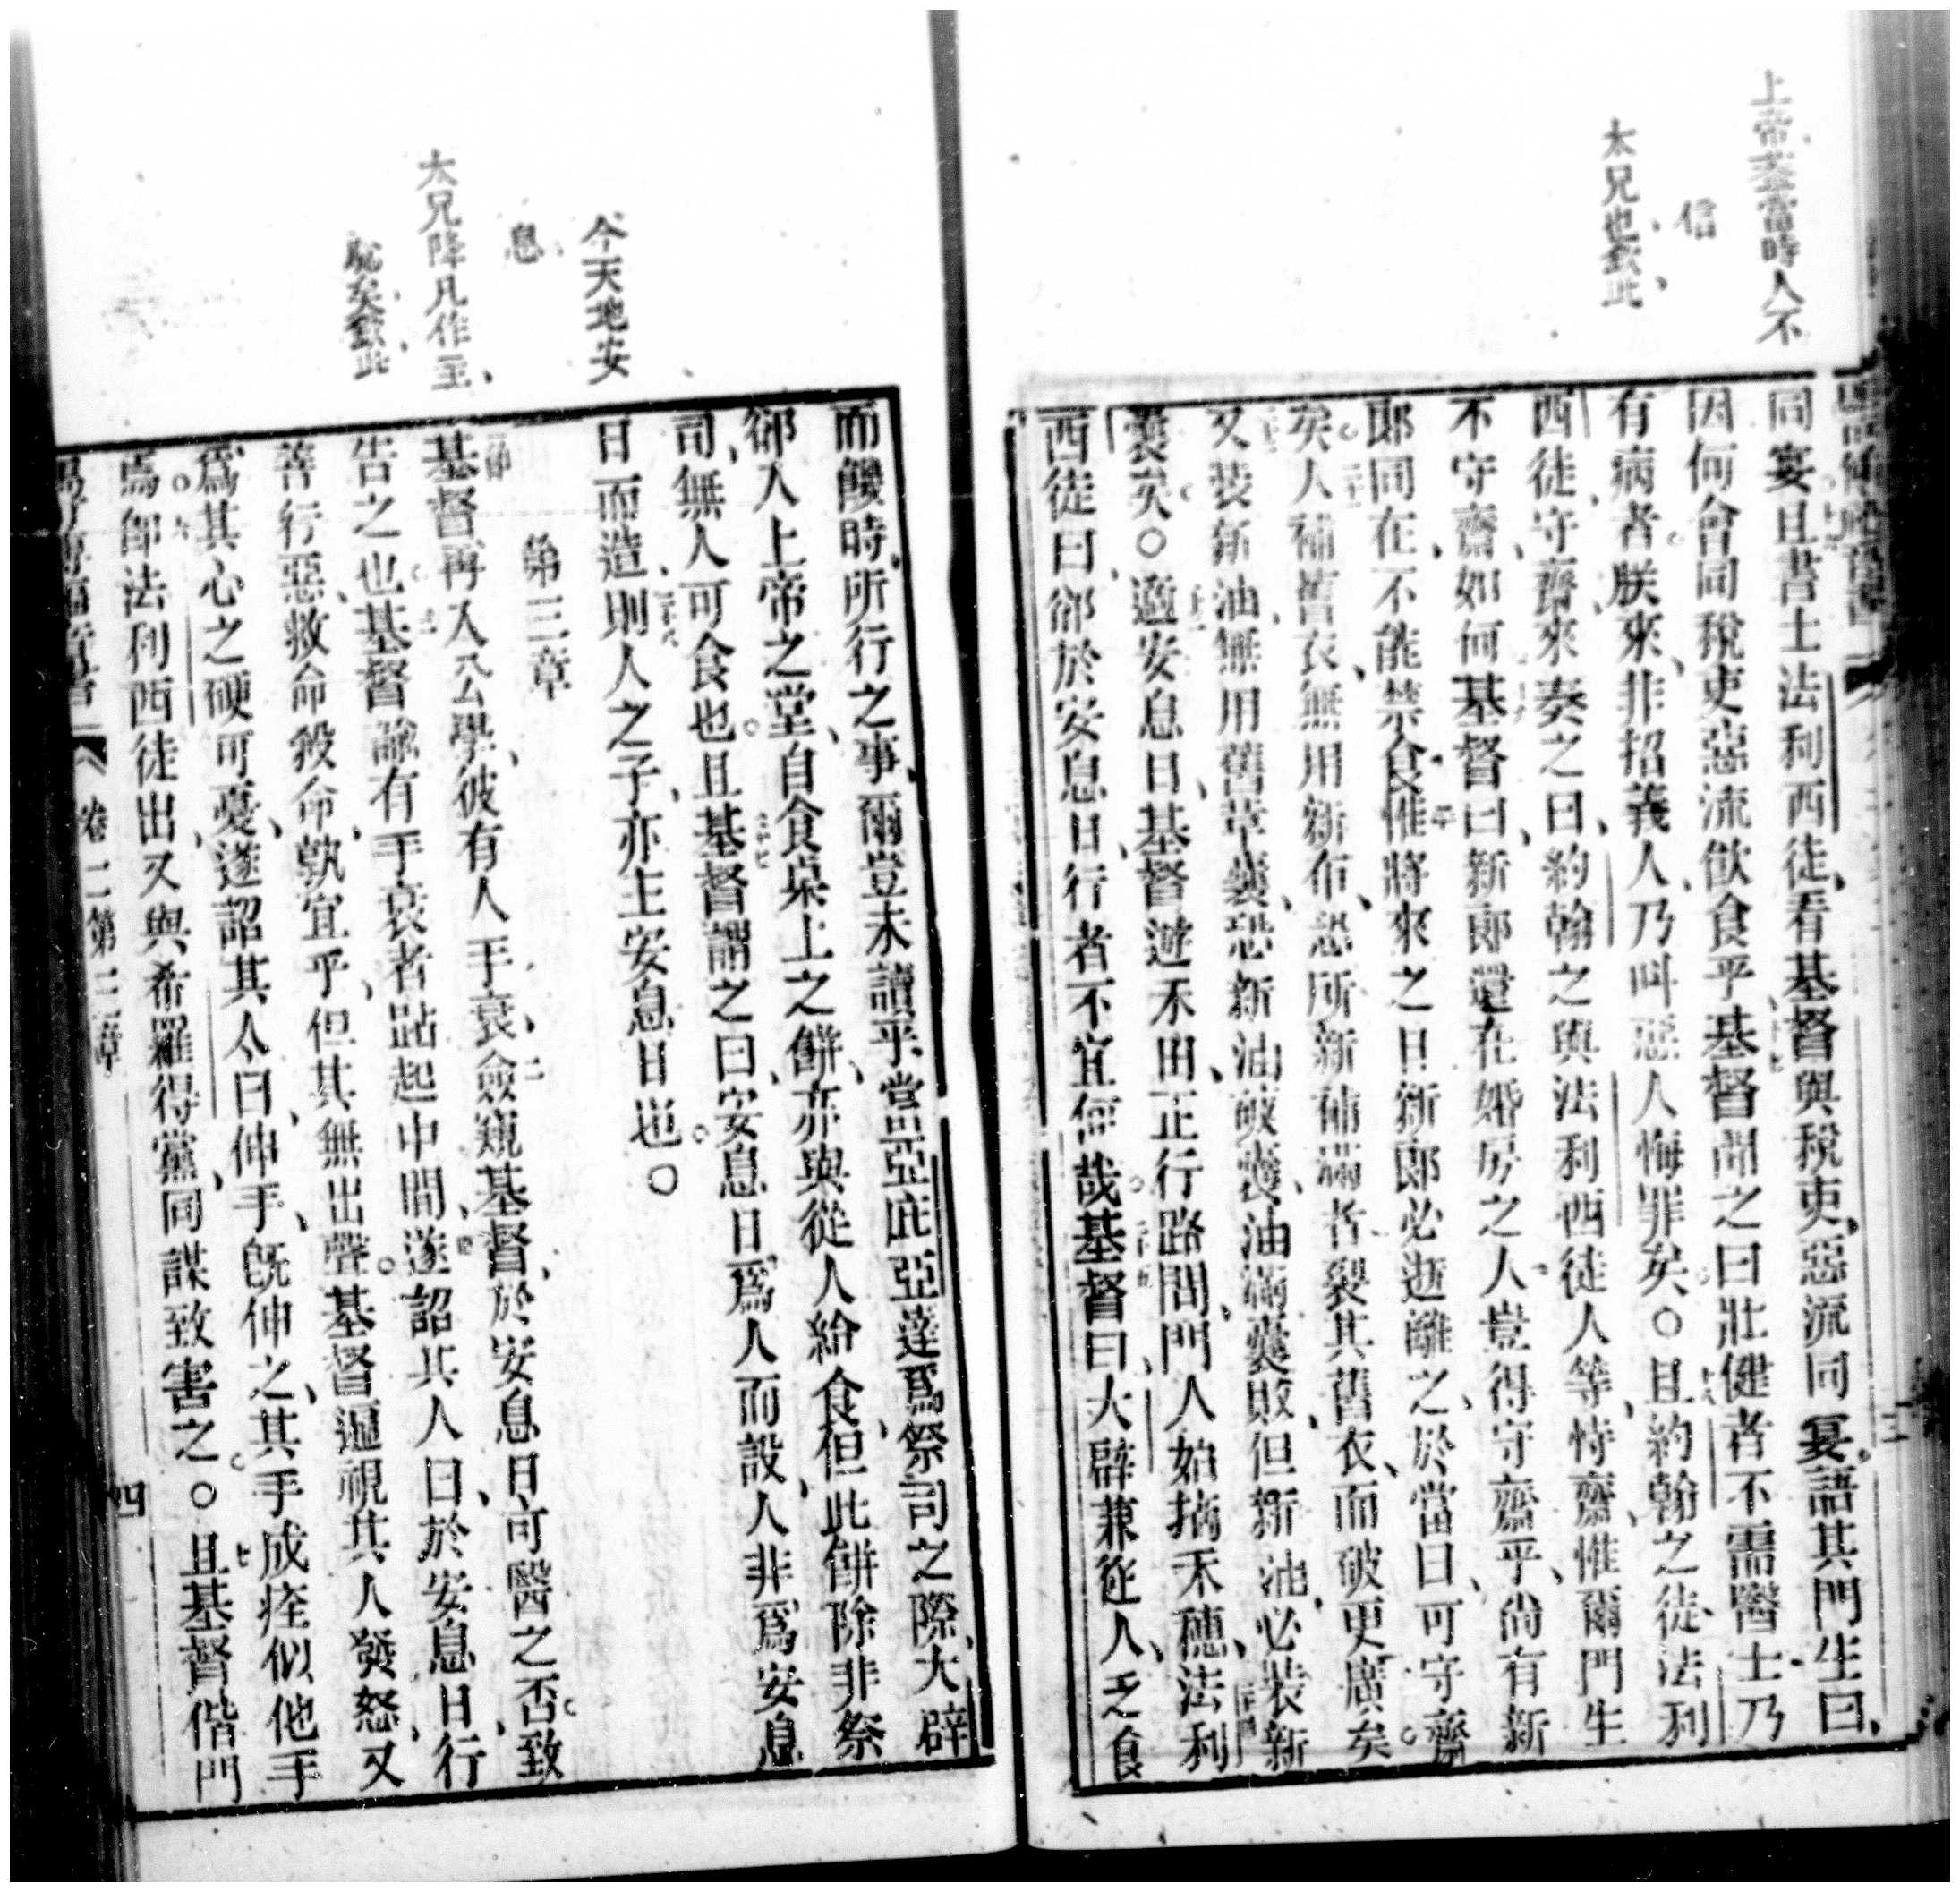 上帝基當時人不
信
太兄也欽此
同宴且書士法利西徒看基督與稅吏惡流同宴語其門生曰
因何會同稅吏惡流飲食乎基督聞之曰壯健者不需醫士乃
有病者朕來非招義人乃叫惡人悔罪矣〇且約翰之徒法利
西徒守齋來奏之曰約翰之與法利西徒人等恃齋惟爾門生
不守齋如何基督曰新郎還在婚房之人豈得守齋乎尚有新
郎同在不能禁食惟將來之日新郎必逝離之於當日可守齋
矣人補舊衣無用新布恐所新補滿者裂其舊衣而破更廣矣
又裝新油無用舊革囊恐新油破囊油滿囊敗但新油必裝新
囊矣〇適安息日基督遊禾田正行路間門人始摘禾穗法利
西徒曰郤於安息日行者不宜何哉基督曰大辟兼從人乏食
三
而饑時所行之事爾豈未讀乎當亞亞庇亞達爲祭司之際大辟
郤入上帝之堂自食桌上之餅亦與從人給食但此餅除非祭
司無人可食也且基督謂之曰安息日爲人而設人非爲安息
日而造則人之子亦主安息日也〇
今天地安
息
太兄降凡作主
驗矣欽此
第三章
基督再入公學彼有人手衰僉窺基督於安息日可醫之否致
告之也基督諭有手衰者跕起中間遂詔其人曰於安息日行
善行惡救命殺命孰宜乎但其無出聲基督遍視其人發怒又
爲其心之硬可憂遂詔其人曰伸手旣伸之其手成痊似他手
焉卽法利西徒出又與希羅得黨同謀致害之〇且基督偕門
卷二第三章
四